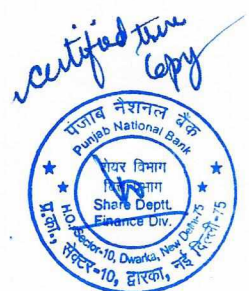 certified true
copy
पंजाब नैशनल बैंक
Punjab National Bank
शेयर विभाग
वित्त विभाग
Share Deptt.
Finance Div.
H.O. Sector-10, Dwarka, New Delhi-75
प्र.का., सेक्टर-10, द्वारका, नई दिल्ली-75